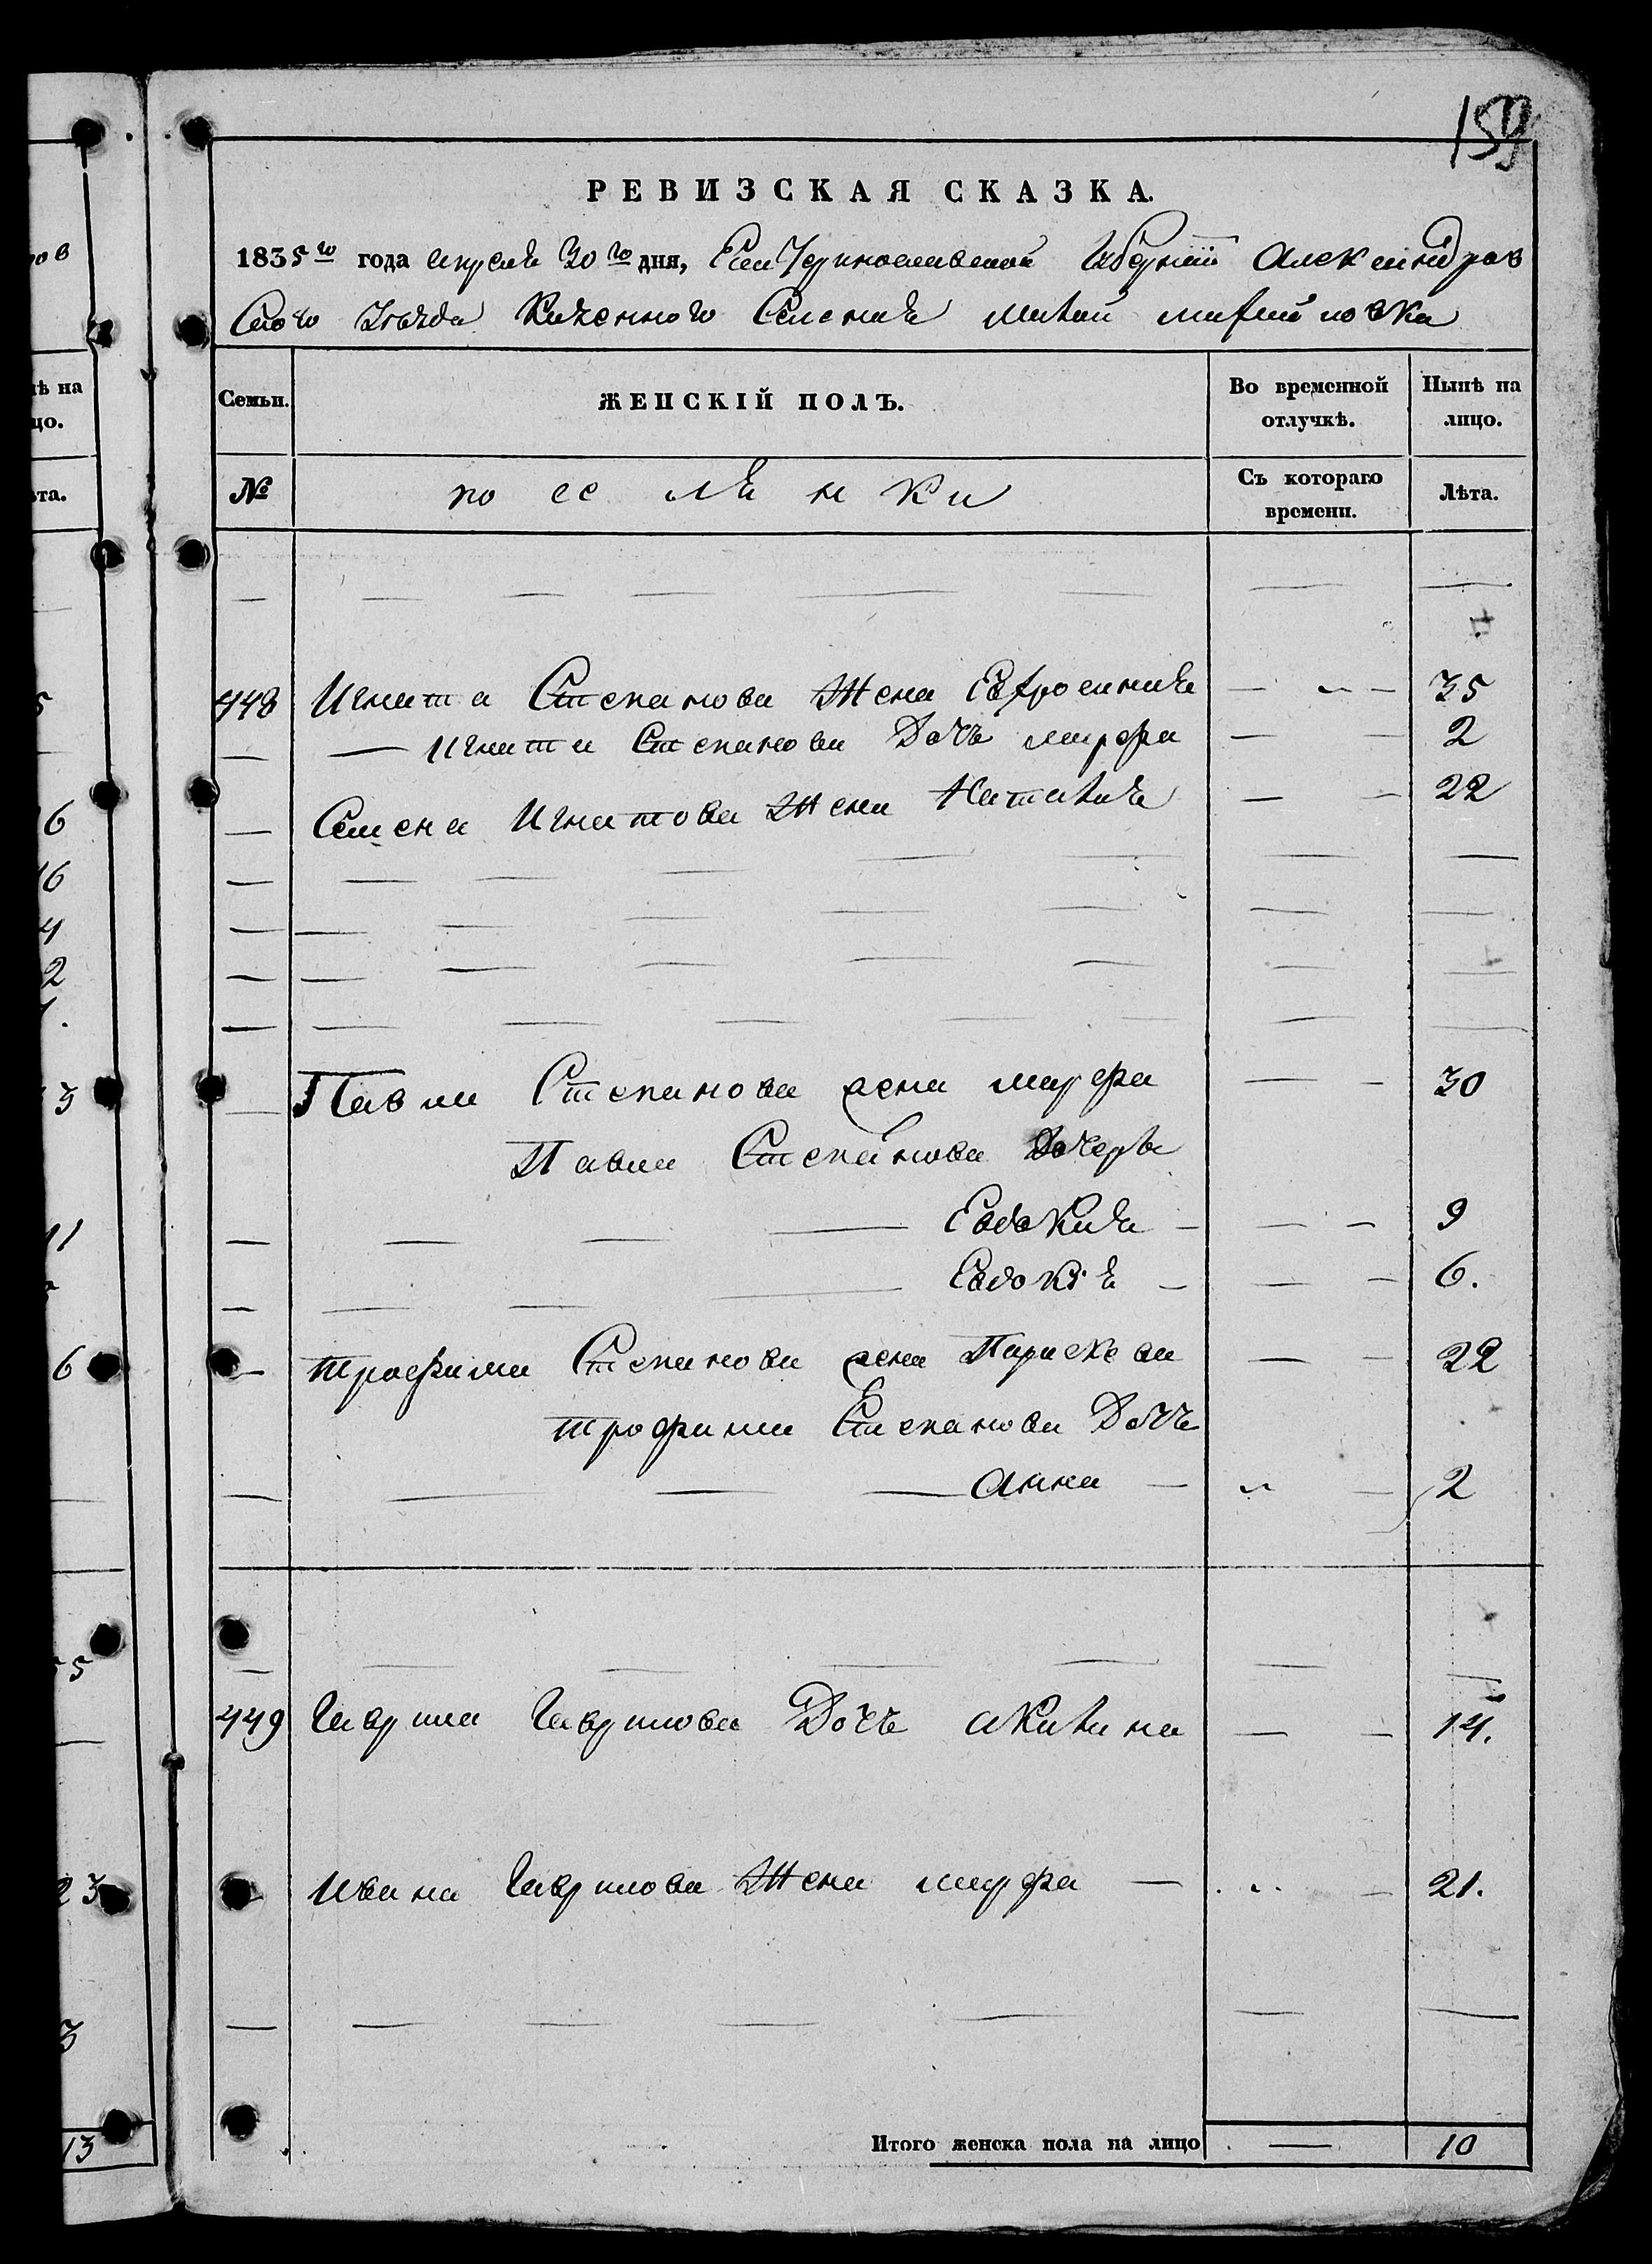 159
РЕВИЗСКАЯ СКАЗКА.
1835го года апреля 30го дня, Екатеринославской Губернии Александров
Скаго Уезда Казенного Селения Малой михайловка
Семьи.
ЖЕНСКІЙ ПОЛЪ.
Во временной отлучкѣ.
Нынѣ на лицо.
№
поселянки
Съ котораго времени.
Лѣта.
448 Игната Степанова Жена Евфросиния — — 35
— Игната Степанова Дочь марфа — — 2
— Семена Игнатова Жена Наталия — — 22
— Павла Степанова жена марфа — — 30
Павла Степанова Дочеры
— Евдокия — — — 9
— Евдокія — — — 6.
— трофима Степанова жена Параскева — — 22
трофима Степанова Дочь
— Анна — — 2
449 Гаврила Гаврилова Дочь акилина — — 14.
Ивана Гаврилова Жена марфа — — 21.
Итого женска пола на лицо — 10
ѣ на
цо.
ѣта.
ов
6
16
4
2
3
11
6
55
23
3
13